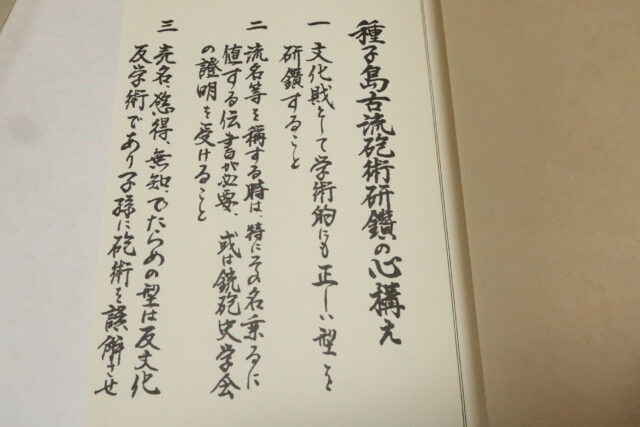 種子島古流砲術研鑽の心構え
一 文化財として学術的にも正しい型を
研鑽すること
二 流名等を稱する時は、特にその名乗るに
値する伝書が必要、或は銃砲史学会
の證明を受けること
三 売名、慾得、無知、でたらめの型は反文化
反学術であり子孫に砲術を誤解させ